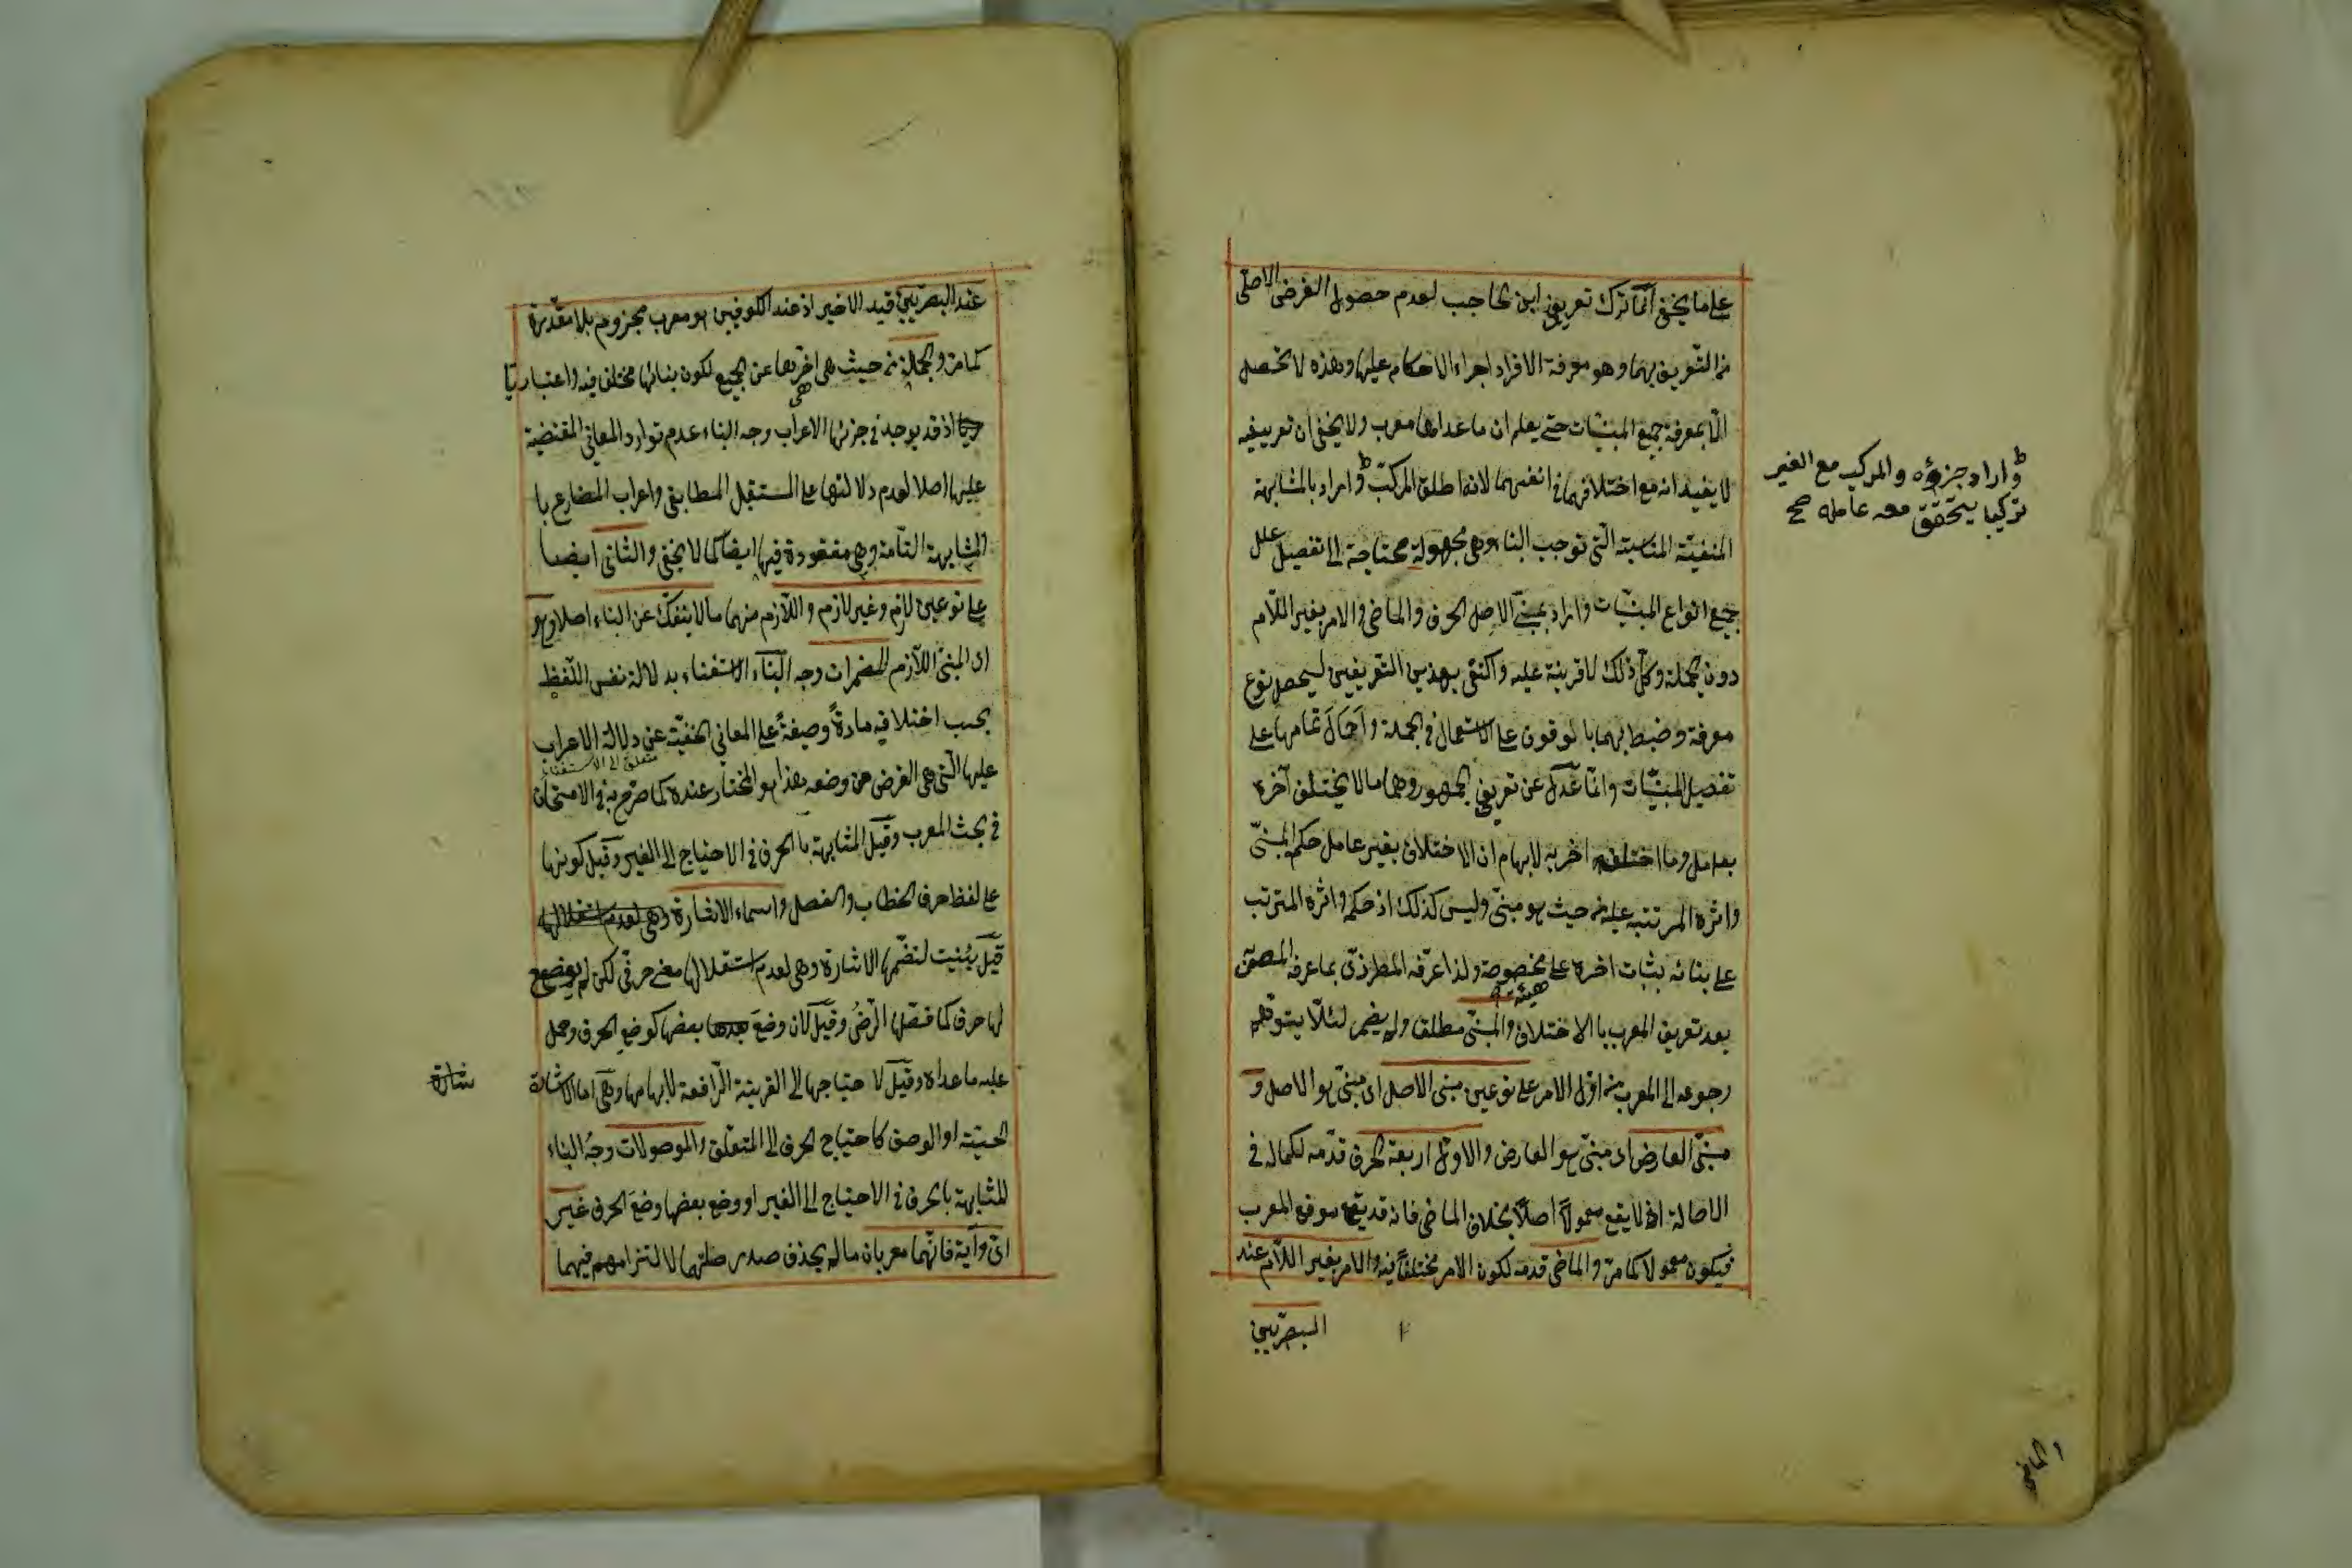 على ما يخفى انما ترك تعريف ابن الحاجب لعدم حصول الغرض الاصلى
من التعريف بهما وهو معرفة الافراد اجراء الاحكام عليها وهذه لا تحصل
الا بمعرفة جميع المبنيّات حتى يعلم ان ما عداها معرب ولا يخفى ان تعريفيه
لا يفيد انه مع اختلافهما فى انفسهما لانه اطلق المركب واراد بالمشابهة
المنفيّة المناسبة الّتى توجب البناء وهى مجهولة محتاجة الى تفصيل علل
جميع انواع المبنيّات واراد بمبنىّ الاصل الحرف والماضى والامر بغير اللّام
دون الجملة وكلّ ذلك لا قرينة عليه واكتفى بهذين التعريفين ليحصل نوع
معرفة وضبط بهما بالوقوف على الاستعمال فى الجملة واحال تمامها على
تفصيل المبنيّات وانّما عدل عن تعريف الجمهور وهما ما لا يختلف آخره
بعامل وما اختلف اخره به لابهام ان الاختلاف بغير عامل حكم المبنىّ
واثره المرتبه عليه من حيث هو مبنى وليس كذلك اذ حكمه واثره المترتب
على بنائه بثبات اخره على هيئة مخصوصة ولذا عرّفه المطرزى بما عرفه المصنف
بعد تعريف المعرب بالاختلاف والمبنى مطلقا ولم يضمر لئلّا يتوهّم
رجوعه الى المعرب من اوّل الامر على نوعين مبنى الاصل اى مبنىّ هو الاصل و
مبنىّ العارض اى مبنىّ هو العارض والاوّل اربعة الحرف قدّمه لكماله فى
الاصالة اذ لا يقع معمولاً اصلاً بخلاف الماضى فانه قد يقع موقع المعرب
فيكون معمولا كما مرّ والماضى قدمه لكون الامر مختلفاً فيه والامر بغير اللّام عند
البصريّين
واراد جزؤه والمركب مع الغير
تركيبا يتحقق معه عامله صح
الماضى
عند البصريّين قيد الاخير اذ عند الكوفيين هو معرب مجزوم بلا مقدّرة
كما مرّ والجملة من حيث هى هى اخّرها عن الجميع لكون بنائها مختلف فيه واعتباريّا
اذ قد يوجد فى جزئها الاعراب وجه البناء عدم توارد المعانى المقتضية
عليها اصلا لعدم دلالتها على المستقل المطابقى واعراب المضارع با
المشابهة التامة وهى مفقودة فيها ايضا كما لا يخفى والثانى ايضا
على نوعين لازم وغير لازم واللّازم منهما ما لا ينفكّ عن البناء اصلا وهو
اى المبنىّ اللّازم المضمرات وجه البناء الاستغناء بدلالة نفس اللّفظ
بحسب اختلافه مادةً وصيغةً على المعانى الخفيّة عن دلالة الاعراب
متعلق الى الاستغناء
عليها الّتى هى الغرض من وضعه هذا هو المختار عنده كما صرّح به فى الامتحان
فى بحث المعرب وقيل المشابهة با الحرف فى الاحتياج الى الغير وقيل كونها
على لفظ حرف الخطاب والفصل واسماء الاشارة وهى لعدم استقلالها
قيل بُنيت لتضمّنها الاشارة وهى لعدم استقلالها معنى حرفّى لكن لم يوضع
لها حرف كما فصّلها الرّضىّ وقيل لان وضع بعضها كوضع الحرف وحمل
عليه ما عداه وقيل لاحتياجها الى القرينة الرّافعة لابهامها وهى اما الاشارة
شارة
الحسّيّة او الوصف كاحتياج الحرف الى المتعلّق والموصولات وجهُ البناء
المشابهة بالحرف فى الاحتياج الى الغير او وضع بعضها وضعَ الحرف غير
اىّ وايّة فانّهما معربان ما لم يحذف صدر صلتهما لالتزامهم فيهما